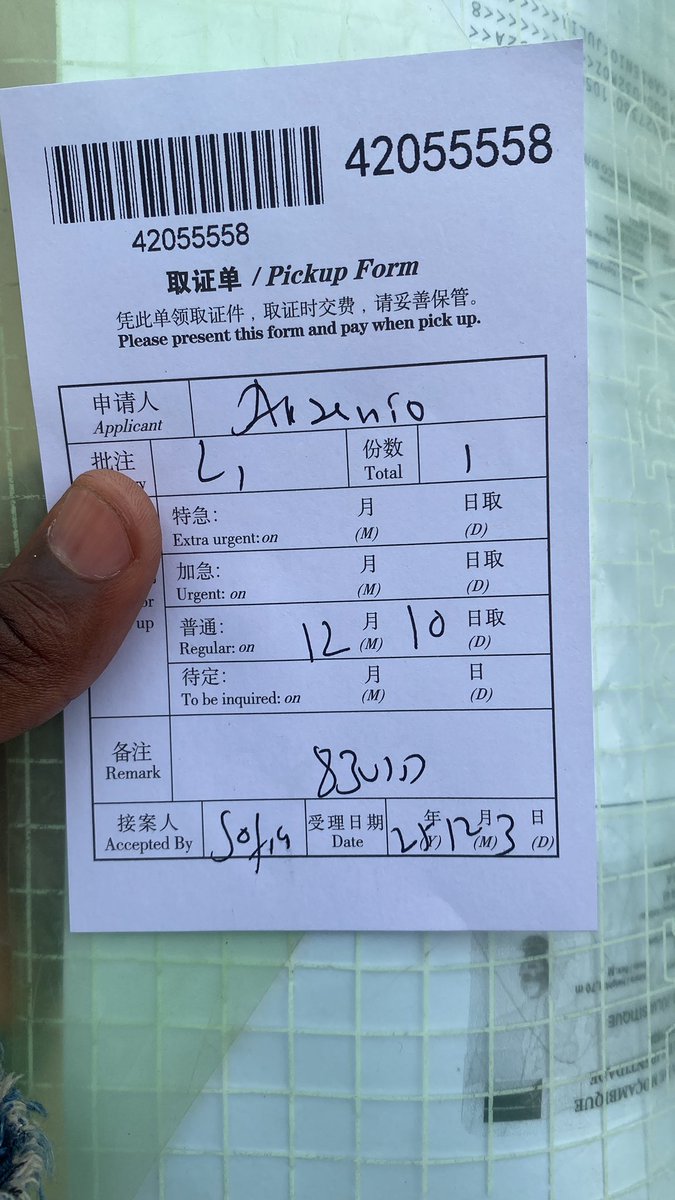 42055558
42055558
取证单 / Pickup Form
凭此单领取证件，取证时交费，请妥善保管。
Please present this form and pay when pick up.
申请人
Applicant
Arsenio
批注
L1
份数
Total
1
特急: 月 日取
Extra urgent: on (M) (D)
加急: 月 日取
Urgent: on (M) (D)
up
普通: 12 月 10 日取
Regular: on (M) (D)
待定: 月 日
To be inquired: on (M) (D)
备注
Remark
接案人
Accepted By
Sofia
受理日期
Date
年 12 月 3 日
(Y) (M) (D)
MOÇAMBIQUE